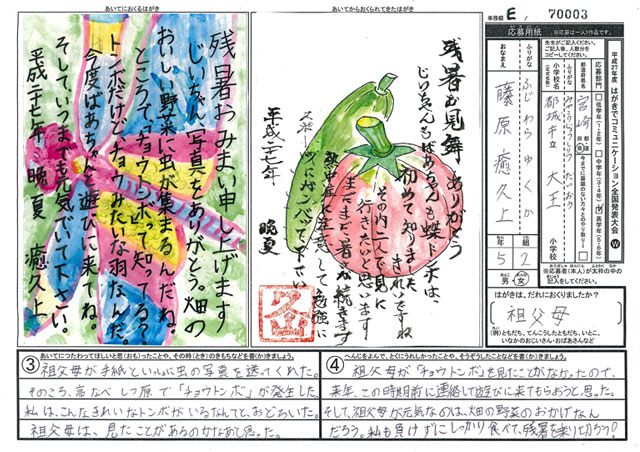 あいてにおくるはがき
残暑おみまい申し上げます
じいちゃん、写真をありがとう。畑の
おいしい野菜に虫が集まるんだね。
ところで、「チョウトンボ」って知ってる？
トンボだけどチョウみたいな羽なんだ。
今度ばあちゃんと遊びに来てね。
そしていつまでも元気でいて下さい。
平成二十七年 晩夏 癒久上
あいてからおくられてきたはがき
残暑お見舞 ありがとう
じいちゃんもばあちゃんも蝶トンボは、
初めて知りました
きれいですね
その内二人で見に
行きたいと思います
まだまだ暑さが続きます
スポーツもガンバッて下さい
平成二七年 晩夏
事務欄 E, 70003
応募用紙
※応募は一人1作品です。
平成27年度 はがきでコミュニケーション全国発表大会 W
応募部門
低学年(1・2年)
中学年(3・4年)
高学年(5・6年)
宮崎 県
都城市立 大王 小学校
小学校名
ふりがな
ふじわら ゆくか
おなまえ
藤原 癒久上
5年 2組
男・女
※応募者(本人)が太枠の中の
はがきは、だれにおくりましたか？
祖父母
(例)ともだち、てんこうしたともだち、いとこ、
いなかのおじいさん・おばあさんなど
③ あいてにつたわってほしいと思(おも)ったことや、その時(とき)のきもちなどを書(か)きましょう。
祖父母が手紙といっしょに虫の写真を送ってくれた。
そのころ、高なべしつ原で「チョウトンボ」が発生した。
私は、こんなきれいなトンボがいるなんてと、おどろいた。
祖父母は、見たことがあるのかなあと思った。
④ へんじをよんで、とくにうれしかったことや、そうぞうしたことなどを書(か)きましょう。
祖父母が「チョウトンボ」を見たことがなかったので、
来年、この時期前に連絡して遊びに来てもらおうと思った。
そして、祖父母が元気なのは、畑の野菜のおかげなん
だろう。私も負けずにしっかり食べて、残暑を乗り切ろう!